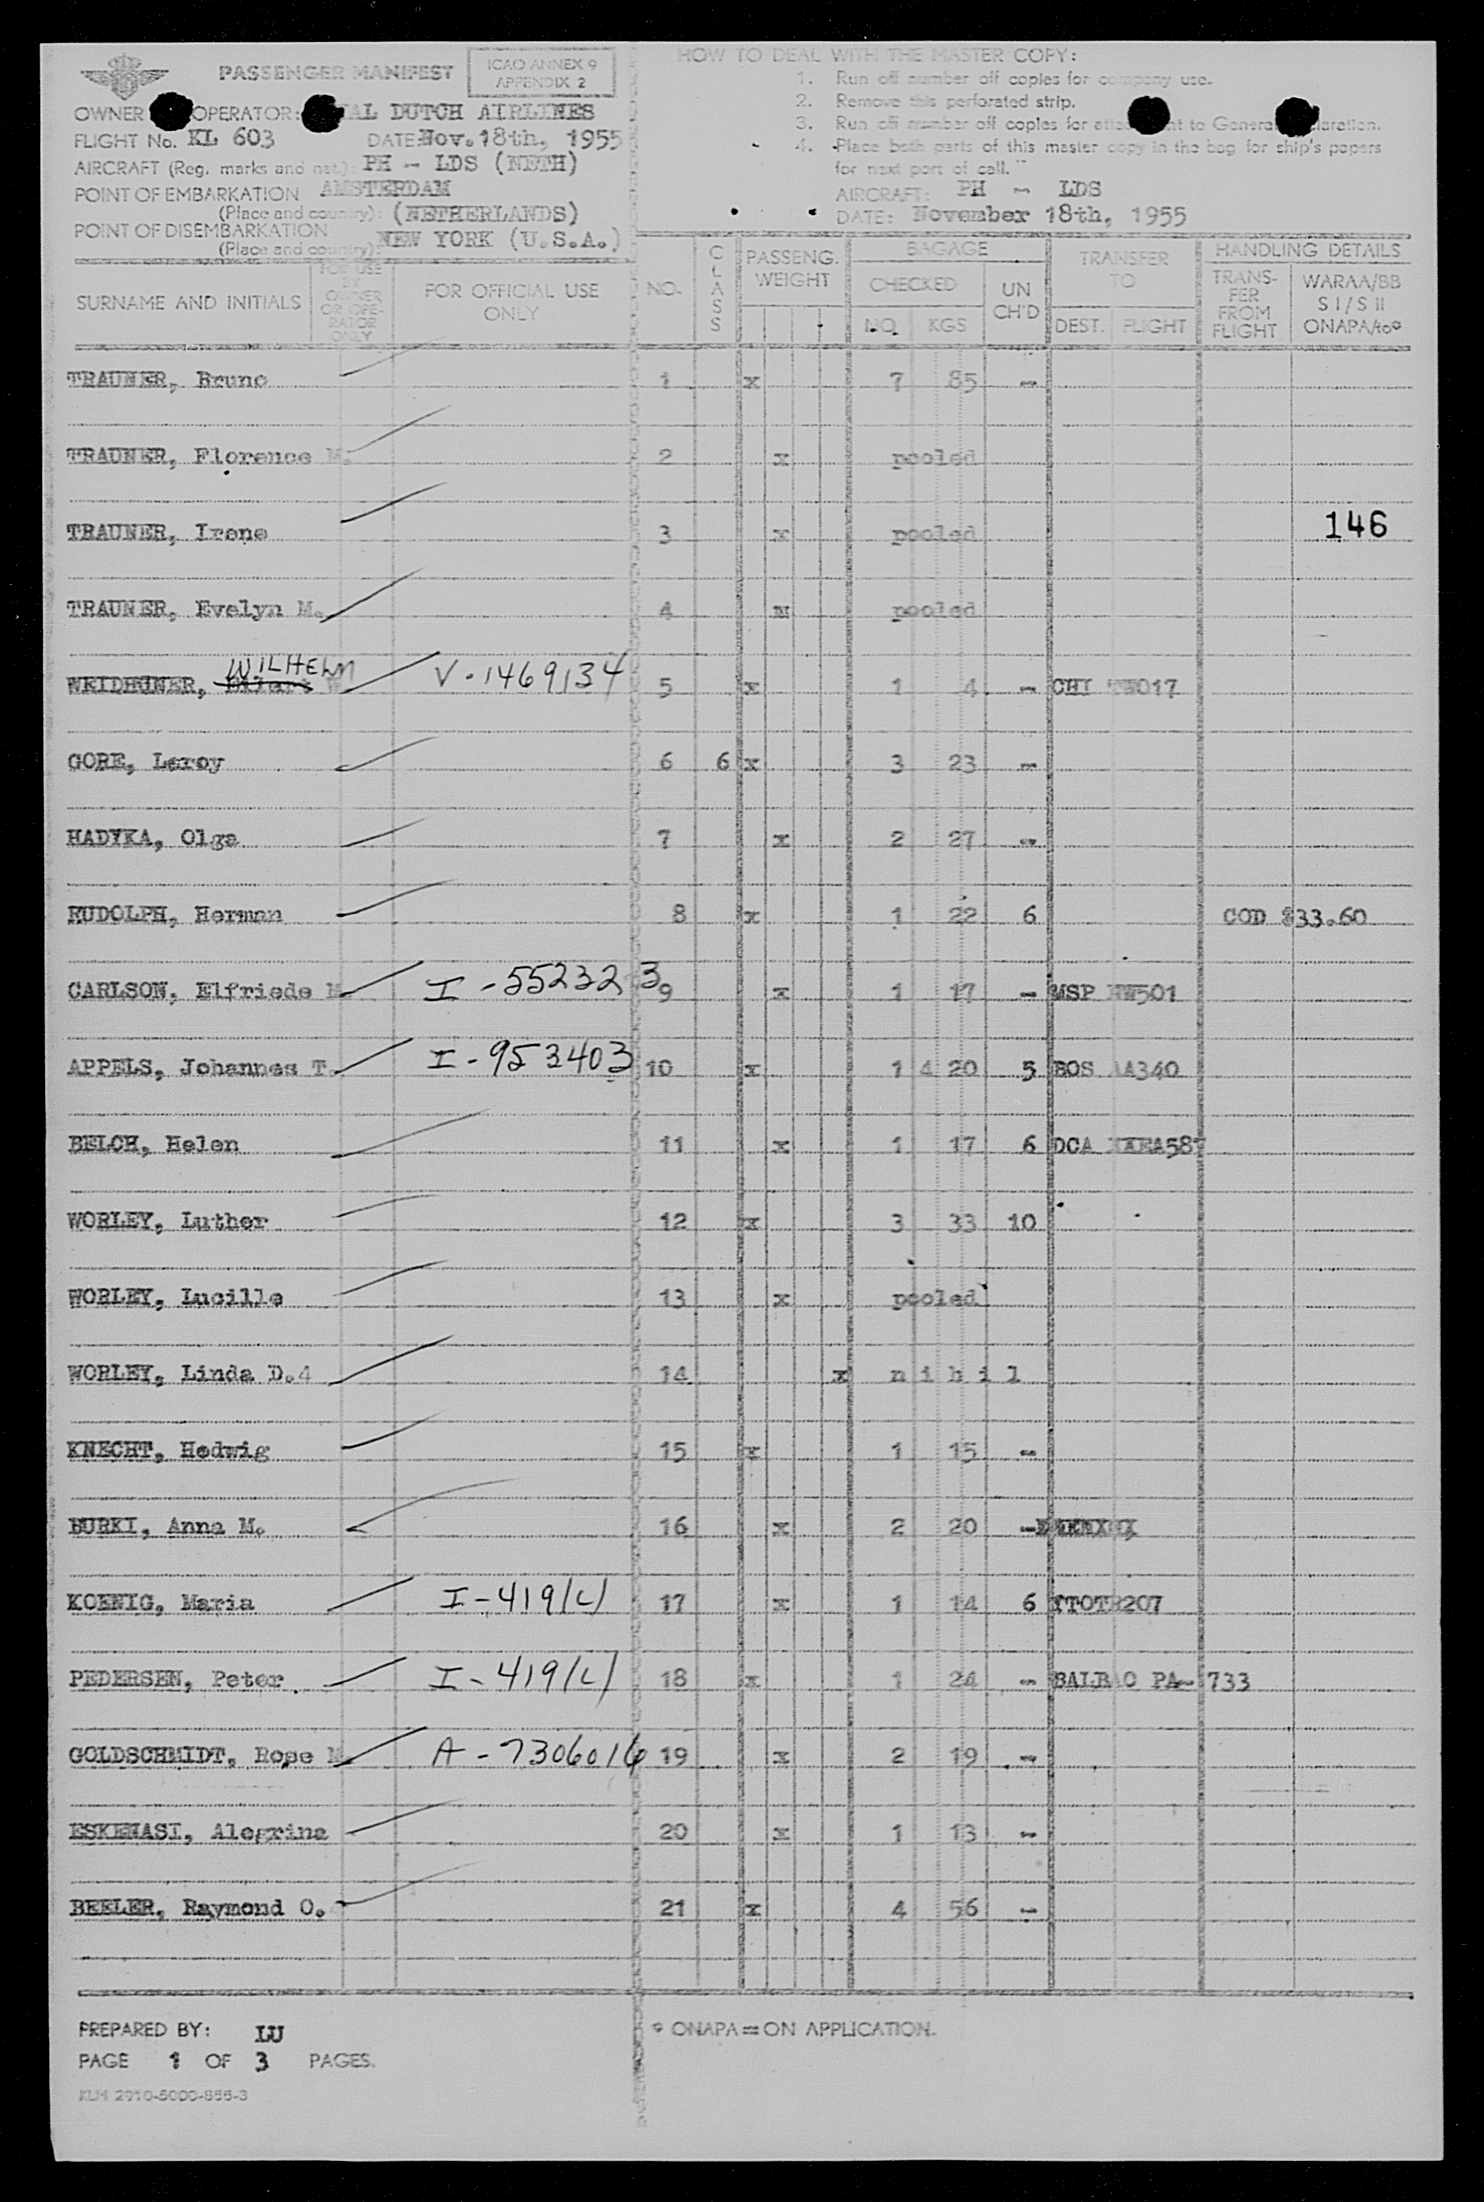 PASSENGER MANIFEST
ICAO ANNEX 9
APPENDIX 2
OWNER OPERATOR: AL DUTCH AIRLINES
FLIGHT No. KL 603 DATE: Nov. 18th, 1955
AIRCRAFT (Reg. marks and nat.): PH - LDS (NETH)
POINT OF EMBARKATION AMSTERDAM
(Place and country): (NETHERLANDS)
POINT OF DISEMBARKATION
(Place and country): NEW YORK (U.S.A.)
HOW TO DEAL WITH THE MASTER COPY:
1. Run off number off copies for company use.
2. Remove this perforated strip.
3. Run off number off copies for to General
4. Place both parts of this master copy in the bag for ship's papers
for next port of call."
AIRCRAFT: PH - LDS
DATE: November 18th, 1955
SURNAME AND INITIALS FOR USE BY OWNER OR OPE-RATOR ONLY FOR OFFICIAL USE ONLY NO. CLASS PASSENG. WEIGHT BAGAGE CHECKED NO. KGS UN CH'D TRANSFER TO DEST. FLIGHT HANDLING DETAILS TRANS-FER FROM FLIGHT WARAA/BB S I / S II ONAPA/
TRAUNER, Bruno 1 x 7 85 -
TRAUNER, Florence M. 2 x pooled
TRAUNER, Irene 3 x pooled 146
TRAUNER, Evelyn M. 4 x pooled
WILHELM
V-1469134 5 x 1 4 - CHI TW017
GORE, Leroy 6 6 x 3 23 -
HADYKA, Olga 7 x 2 27 -
RUDOLPH, Herman 8 x 1 22 6 COD $33.60
CARLSON, Elfriede M. I-552323 9 x 1 17 - MSP NW501
APPELS, Johannes T. I-953403 10 x 1 4 20 5 BOS AA340
BELCH, Helen 11 x 1 17 6 DCA EA587
WORLEY, Luther 12 x 3 33 10
WORLEY, Lucille 13 x pooled
WORLEY, Linda D.4 14 x n i h i l
KNECHT, Hedwig 15 x 1 15 -
BURKI, Anna M. 16 x 2 20 -
KOENIG, Maria I-419(L) 17 x 1 14 6 YTOTR207
PEDERSEN, Peter I-419(L) 18 x 1 24 - BALBAO PA- 733
GOLDSCHMIDT, Rose M. A-7306016 19 x 2 19 -
ESKENASI, Alegrina 20 x 1 13 -
BEELER, Raymond O. 21 x 4 56 -
PREPARED BY: LU
PAGE 1 OF 3 PAGES.
KLM 2910-5000-855-3
° ONAPA = ON APPLICATION.